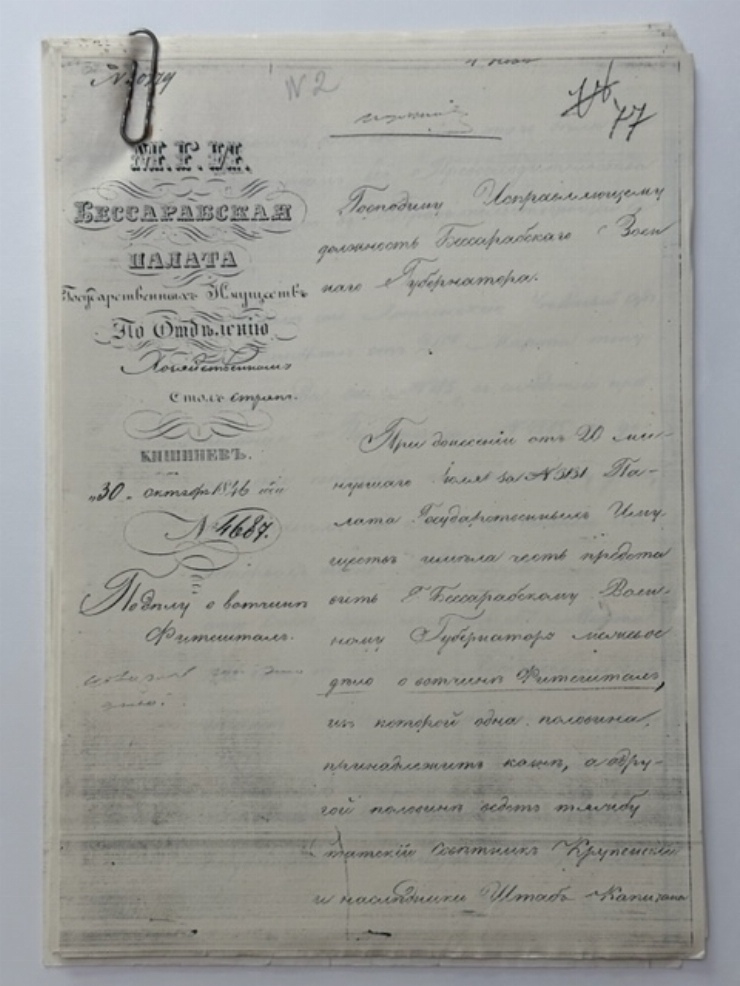 № 2
77
М.Г.И.
БЕССАРАБСКАЯ
ПАЛАТА
Государственныхъ Имуществъ
По Отдѣленію
Хозяйственному
Столъ
КИШИНЕВЪ.
„30„ октября 1846 года
№ 4687.
По дѣлу о вотчинѣ
Фитештахъ.
Господину Исправляющему
должность Бессарабскаго Воен
наго Губернатора.
При донесеніи отъ 20 ми-
нувшаго Іюля за № 3131 Па-
лата Государственныхъ Иму-
ществъ имѣла честь предста
вить Г. Бессарабскому Воен-
ному Губернатору межевое
дѣло о вотчинѣ Фитештахъ,
изъ которой одна половина,
принадлежитъ казнѣ, а о дру-
гой половинѣ ведетъ тяжбу
Статскій Совѣтникъ Крупенскій
и наслѣдники Штабъ-Капитана